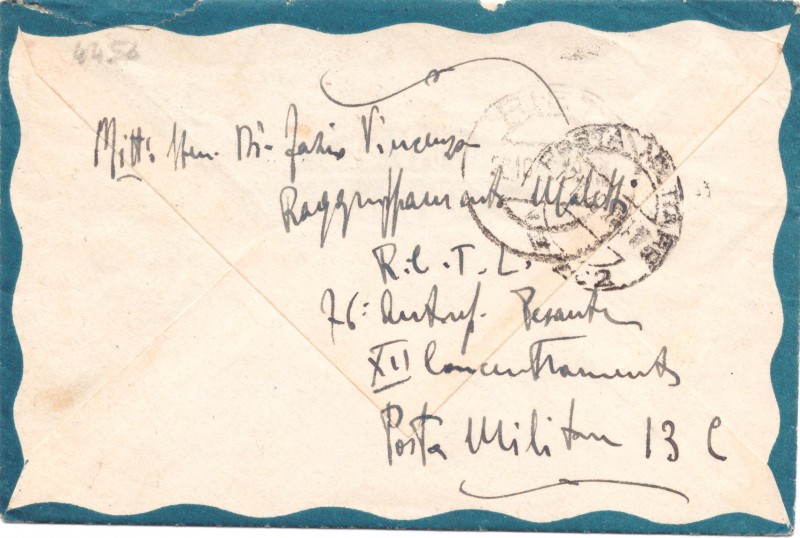 4456
Mitt: Sten. Di Fazio Vincenzo
Raggruppamento Maletti
R.C.T.L.
76: Autref. Pesante
XII Concentramento
Posta Militare 13 C
POSTA